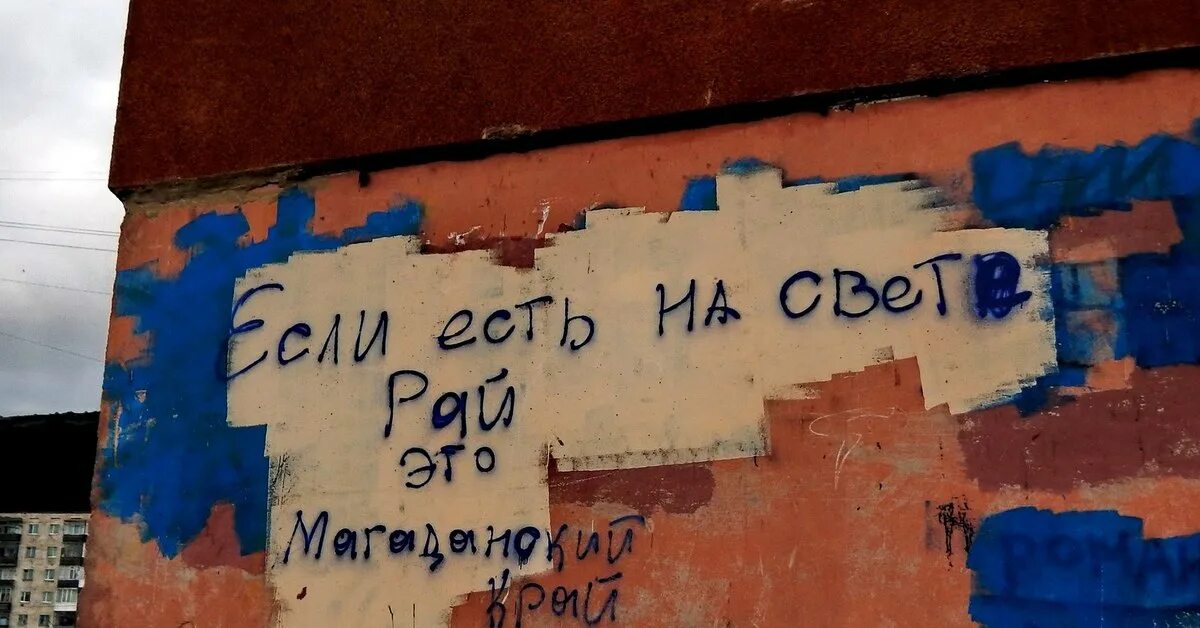 Если есть на свете
Рай
это
Магаданский
Край